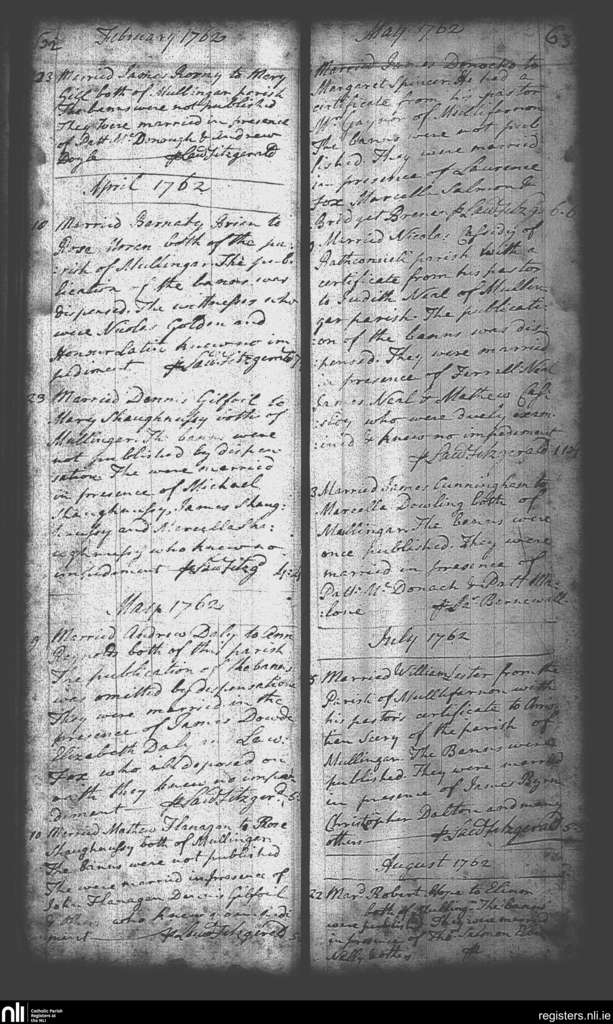 62
February 1762
23 Married James Roony to Mary
Gill both of Mullingar parish
The banns were not published
They were married in presence
of Patt. McDonough & Andrew
Doyle Law: Fitzgerald
April 1762
10 Married Barnaby Brien to
Rose Horen both of the pa:
rish of Mullingar. The pub:
lication of the banns was
dispensed. The wittnesses who
were Nicolas Golden and
Honnor Latin knew no im
pediment Law: Fitzgerald
23 Married Dennis Gilfoil to
Mary Shaughnussy both of
Mullingar. The banns were
not published by dispen
sation. The were married
in presence of Michael
Shaughnussy, James Shaug:
hnussy and Marcella Sha:
ughnussy who knew no
impediment Law: Fitzg
May 1762
9 Married Andrew Daly to Ann
Reynolds both of this parish
The publication of the banns
was omitted by dispensation
They were married in the
presence of James Dowde
Elizabeth Daly Law:
Fox who all deposed on
oath they knew no impe
diment Law: Fitzgerd
10 Married Mathew Flanagan to Rose
Shaughnussy both of Mullingar
The banns were not published
The were married in presence of
John Flanagan Dennis Gilfoil
who knew no impedi
ment Law: Fitzgerald
63
May 1762
Married James Donocho to
Margaret Spincer. He had a
certificate from his pastor
Mr. Gaynor of Multifarnon
The banns were not pub
lished. They were married
in presence of Laurence
Fox Marcella Salmon &
Bridget Law: Fitzg
9 Married Nicolas Cassidy of
Rathconnell parish with a
certificate from his pastor
to Judith Neal of Mullin
gar parish. The publicati:
on of the banns was dis
:pensed. They were married
in presence of Ferrall Neal
James Neal & Mathew Cas
:sidy who were duely exam
:ined & knew no impediment
Law: Fitzgerald
3 Married James Cunningham to
Marcella Dowling both of
Mullingar. The banns were
once published. They were
married in presence of
Patt: McDonach & Patt: Ma
:lone Barnewall
July 1762
5 Married William Lester from the
Parish of Multifarnon with
his pastors certificate to
Scery of the parish of
Mullingar. The Banns were
published. They were married
in presence of James Byrn
Christopher Dalton and many
others Law: Fitzgerald
August 1762
22 Mard. Robert Hope to Elinor
both of Mulling The banns
were published They were married
in presence of Thos Salmon
Nelly
nli
Catholic Parish
Registers at
the NLI
registers.nli.ie